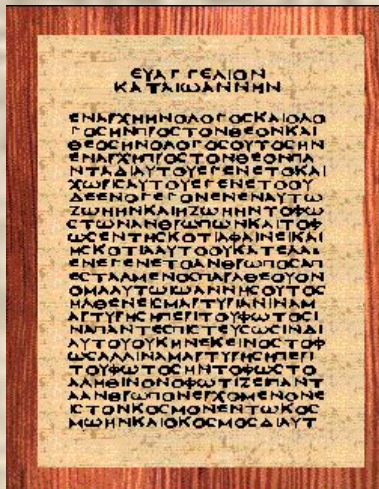 ΕΥΑΓΓΕΛΙΟΝ
ΚΑΤΑΙΩΑΝΝΗΝ
ΕΝΑΡΧΗΗΝΟΛΟΓΟϹΚΑΙΟΛΟ
ΓΟϹΗΝΠΡΟϹΤΟΝΘΕΟΝΚΑΙ
ΘΕΟϹΗΝΟΛΟΓΟϹΟΥΤΟϹΗΝ
ΕΝΑΡΧΗΠΡΟϹΤΟΝΘΕΟΝΠΑ
ΝΤΑΔΙΑΥΤΟΥΕΓΕΝΕΤΟΚΑΙ
ΧΩΡΙϹΑΥΤΟΥΕΓΕΝΕΤΟΟΥ
ΔΕΕΝΟΓΕΓΟΝΕΝΕΝΑΥΤΩ
ΖΩΗΗΝΚΑΙΗΖΩΗΗΝΤΟΦΩ
ϹΤΩΝΑΝΘΡΩΠΩΝΚΑΙΤΟΦ
ΩϹΕΝΤΗϹΚΟΤΙΑΦΑΙΝΕΙΚΑΙ
ΗϹΚΟΤΙΑΑΥΤΟΟΥΚΑΤΕΛΑΒ
ΕΝΕΓΕΝΕΤΟΑΝΘΡΩΠΟϹΑΠ
ΕϹΤΑΛΜΕΝΟϹΠΑΡΑΘΕΟΥΟΝ
ΟΜΑΑΥΤΩΙΩΑΝΝΗϹΟΥΤΟϹ
ΗΛΘΕΝΕΙϹΜΑΡΤΥΡΙΑΝΙΝΑΜ
ΑΡΤΥΡΗϹΗΠΕΡΙΤΟΥΦΩΤΟϹΙ
ΝΑΠΑΝΤΕϹΠΙϹΤΕΥϹΩϹΙΝΔΙ
ΑΥΤΟΥΟΥΚΗΝΕΚΕΙΝΟϹΤΟΦ
ΩϹΑΛΛΙΝΑΜΑΡΤΥΡΗϹΗΠΕΡΙ
ΤΟΥΦΩΤΟϹΗΝΤΟΦΩϹΤΟ
ΑΛΗΘΙΝΟΝΟΦΩΤΙΖΕΙΠΑΝΤ
ΑΑΝΘΡΩΠΟΝΕΡΧΟΜΕΝΟΝΕ
ΙϹΤΟΝΚΟϹΜΟΝΕΝΤΩΚΟϹ
ΜΩΗΝΚΑΙΟΚΟϹΜΟϹΔΙΑΥΤ